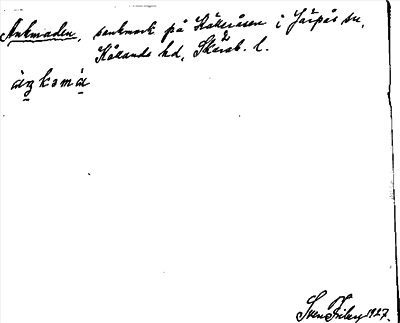 Ankmaden, sankmark på Källeråsen i Järpås sn,
Kållands hd, Skarab. l.
àŋkəmà
Sven Friberg 1927.